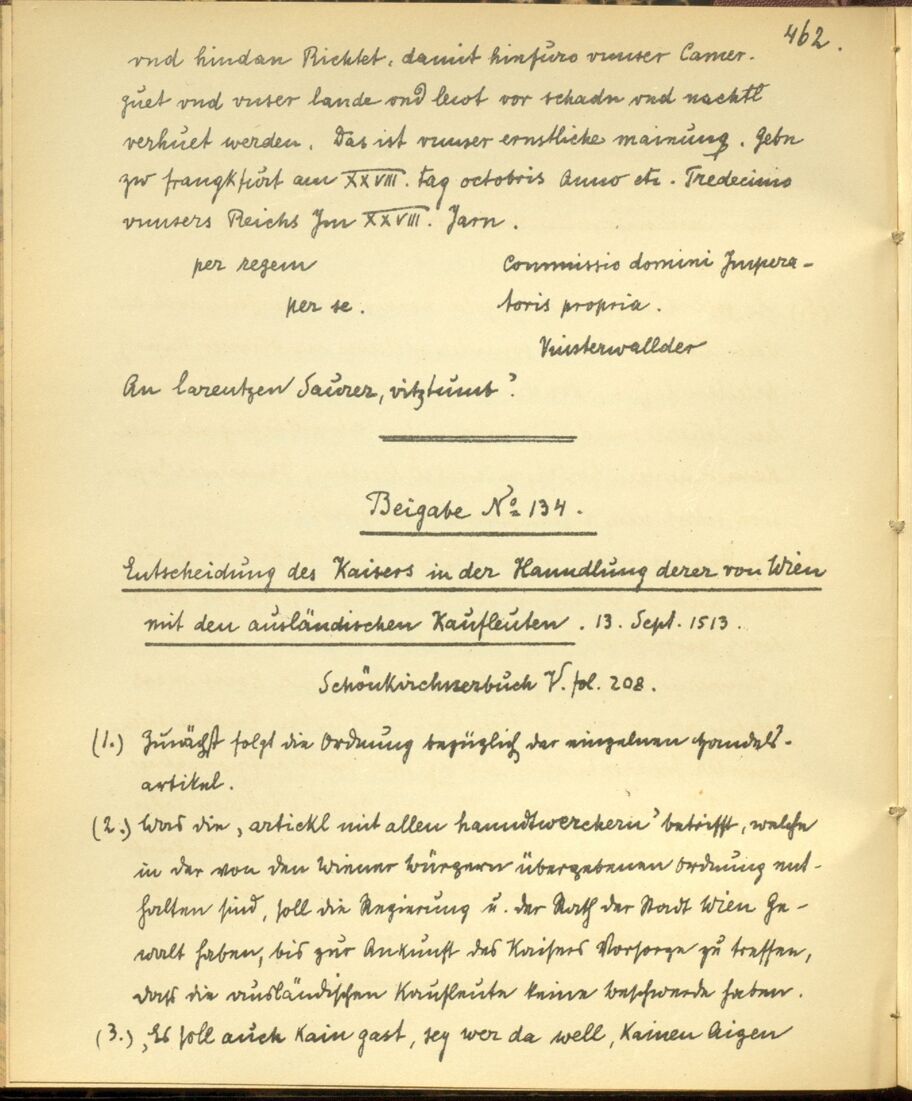 462.
vnd hindan Richtet, damit hinfuro vnnser Camer-
guet vnd vnser lande vnd leut vor schadn vnd nachtl
verhuet werden. Das ist vnnser ernstliche mainung. Gebn
zw frangkfurt am XXVIII. tag octobris Anno etc. Tredecimo
vnnsers Reichs Im XXVIII. Jarn.
per regem
per se.
Commissio domini Impera-
toris propria.
Vinsterwallder
An Larentzen Saurer, vitztumb?
Beigabe No 134.
Entscheidung des Kaisers in der Hanndlung derer von Wien
mit den ausländischen Kaufleuten. 13. Sept. 1513.
Schönkirchnerbuch V. fol. 208.
(1.) Zunächst folgt die Ordnung bezüglich der einzelnen Handels-
artikel.
(2.) Was die „artickl mit allen hanndtwerchern“ betrifft, welche
in der von den Wiener Bürgern übergebenen Ordnung ent-
halten sind, soll die Regierung u. der Rath der Stadt Wien Ge-
walt haben, bis zur Ankunft des Kaisers Vorsorge zu treffen,
dass die ausländischen Kaufleute keine Beschwerde haben.
(3.) „Es soll auch kain gast, sey wer da well, kainen aigen